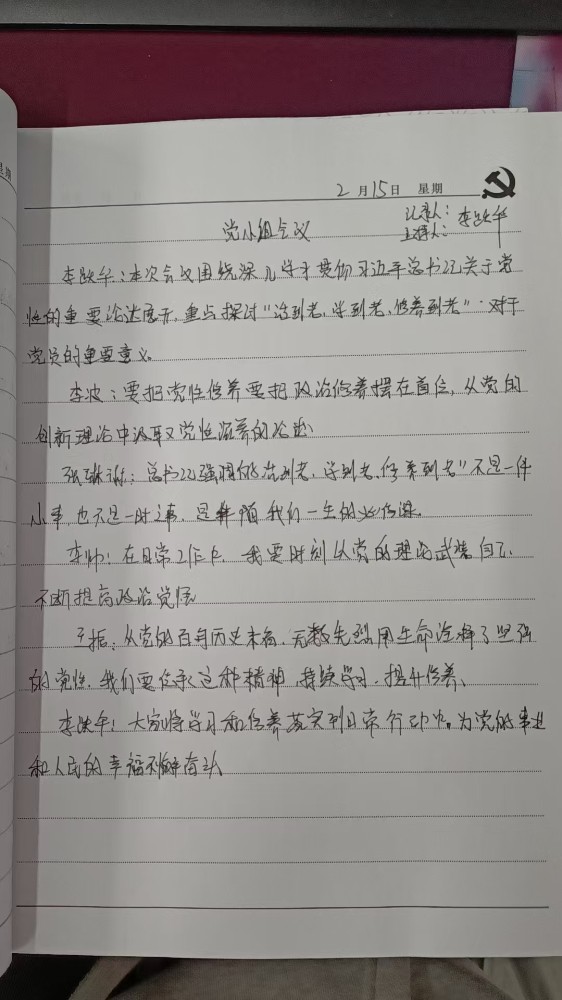 2月15日 星期
记录人：
党小组会议
主持人：李跃华
李跃华：本次会议围绕深入学习贯彻习近平总书记关于党
性的重要论述展开，重点探讨“活到老，学到老，修养到老”对于
党员的重要意义。
李波：要把党性修养要把政治修养摆在首位，从党的
创新理论中汲取党性滋养的论述
总书记强调的“活到老，学到老，修养到老”不是一件
小事也不是一时之事，是伴随我们一生的必修课。
李帅：在日常工作中，我要时刻从党的理论武装自己，
不断提高政治觉悟
王振：从党的百年历史来看，无数先烈用生命诠释了坚强
的党性，我们要传承这种精神，持续学习，提升修养、
李跃华：大家将学习和修养落实到日常行动中。为党的事业
和人民的幸福不懈奋斗